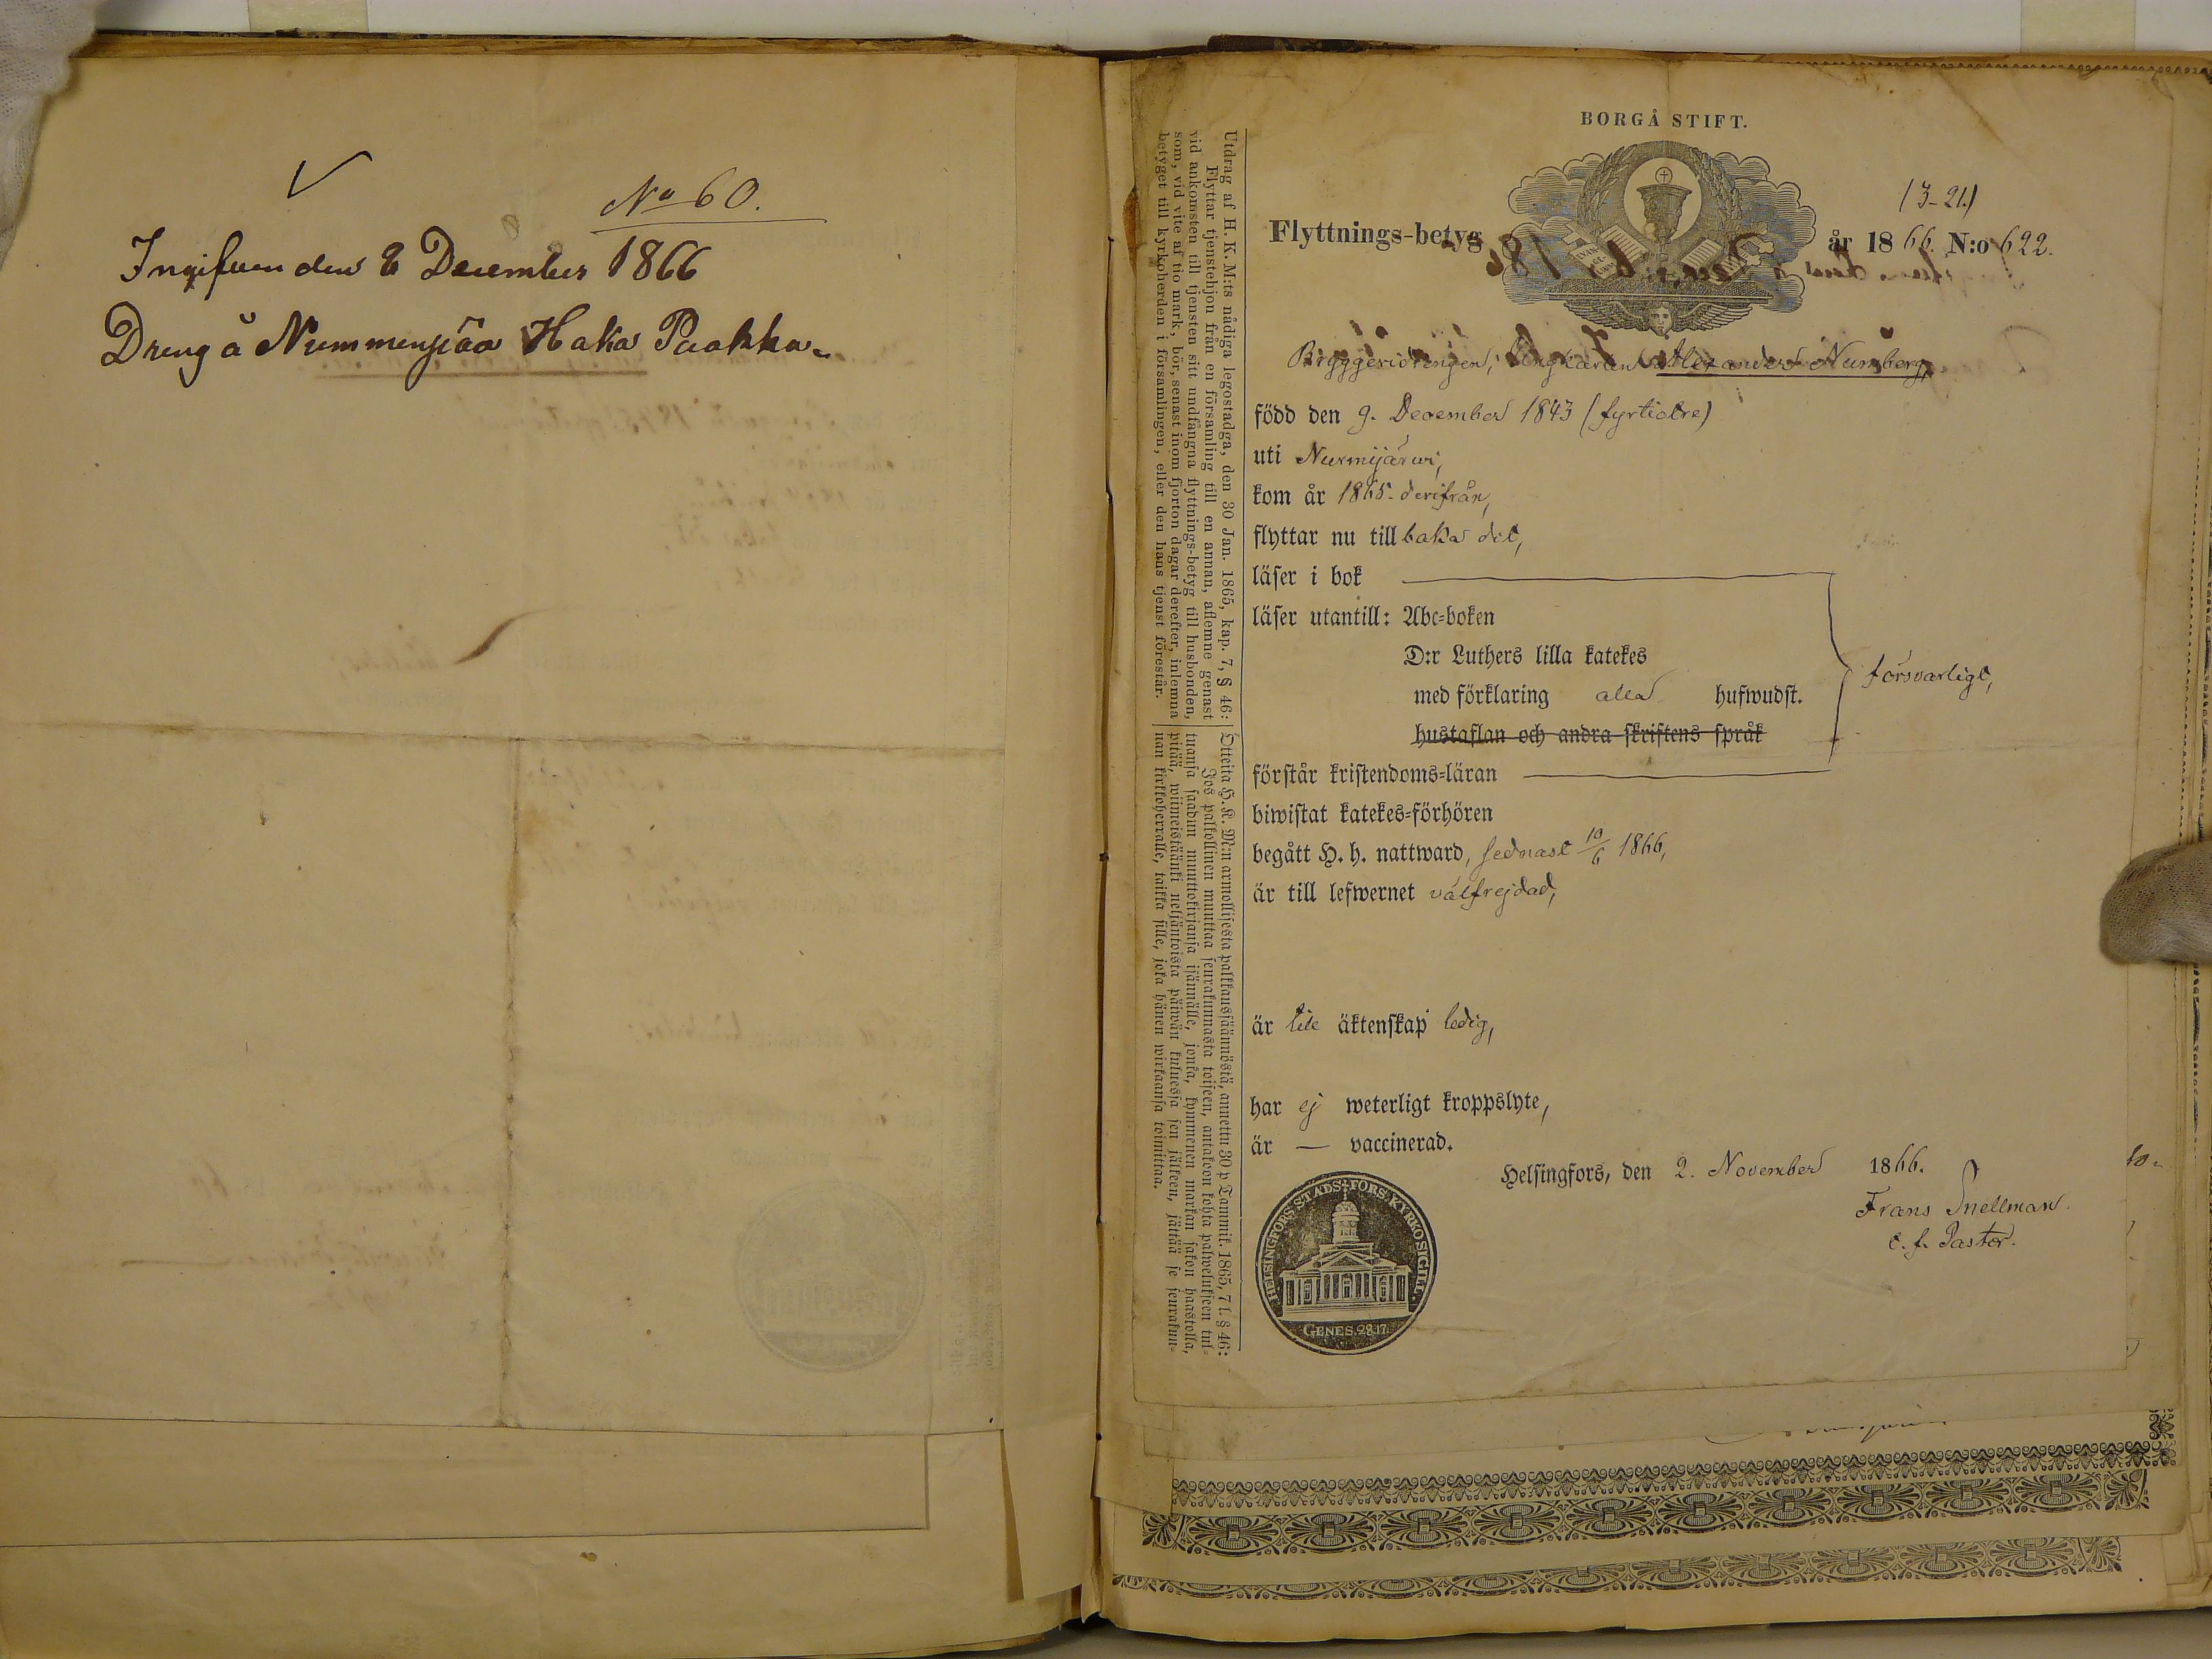 No 60.
Ingifven den 8 December 1866
Dreng å Nummenpää Haka Paakka.
BORGÅ STIFT.
(3-21.)
Flyttnings-betyg år 1866. N:o 622.
Bryggeridrengen, Ungkarlen Alexander Nurmberg,
född den 9. December 1843 (fyrtiotre)
uti Nurmijärvi,
kom år 1865. derifrån,
flyttar nu till baka dit,
läser i bok
läser utantill: Abc-boken
D:r Luthers lilla katekes
med förklaring alla hufwudst.
hustaflan och andra skriftens språk
försvarligt,
förstår kristendoms-läran
biwistat katekes-förhören
begått H. h. nattward, sednast 10/6 1866,
är till lefwernet välfrejdad,
är till äktenskap ledig,
har ej weterligt kroppslyte,
är — vaccinerad.
Helsingfors, den 2. November 1866.
Frans Snellman.
e. f. Pastor.
HELSINGFORS STADS-FÖRS. KYRKOSIGILL.
GENES. 28.17.
Utdrag af H. K. M:ts nådiga legostadga, den 30 Jan. 1865, kap. 7, § 46:
Flyttar tjenstehjon från en församling till en annan, aflemne genast
vid ankomsten till tjensten sitt undfångna flyttnings-betyg till husbonden,
som, vid vite af tio mark, bör, senast inom fjorton dagar derefter, inlemna
betyget till kyrkoherden i församlingen, eller den hans tjenst förestår.
Otteita H. K. M:n armollisesta palkkaussäännöstä, annettu 30 p Tammik. 1865, 7 l. § 46:
Jos palkollinen muuttaa seurakunnasta toiseen, antakoon kohta palwelukseen tul-
tuansa saadun muuttokirjansa isännälle, jonka, kymmenen markan sakon haastolla,
pitää, wiimeistäänki neljäntoista päiwän kuluessa sen jälkeen, jättää se seurakun-
nan kirkkoherralle, taikka sille, joka hänen wirkaansa toimittaa.